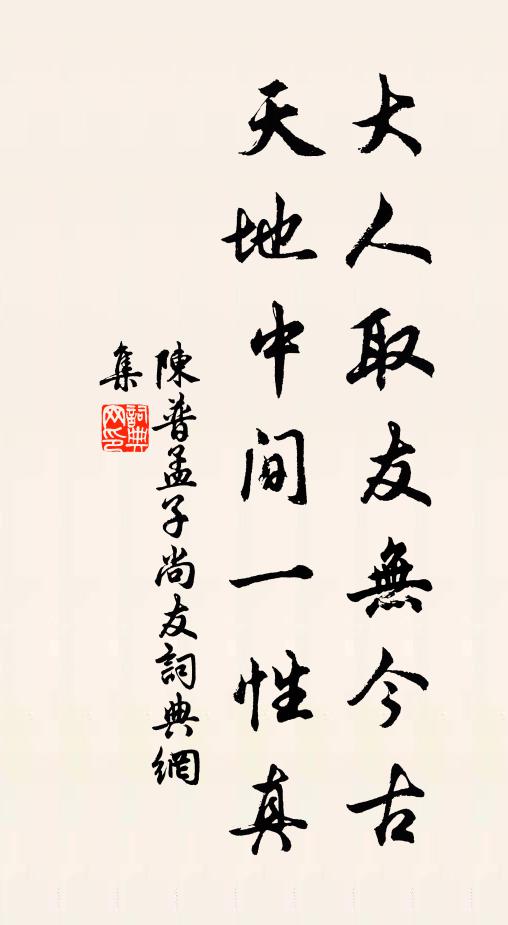 大人取友無今古
天地中间一性真
陳普孟子尚友詞典網
集
詞典
网印